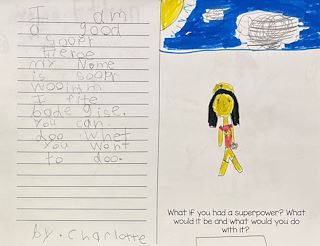 I am
a good
sooper
Heroe
my Nome
is soopr
wooimm
I fite
bade gise.
you can
doo whet
you wont
to doo.
by. charlotte
What if you had a superpower? What
would it be and what would you do
with it?